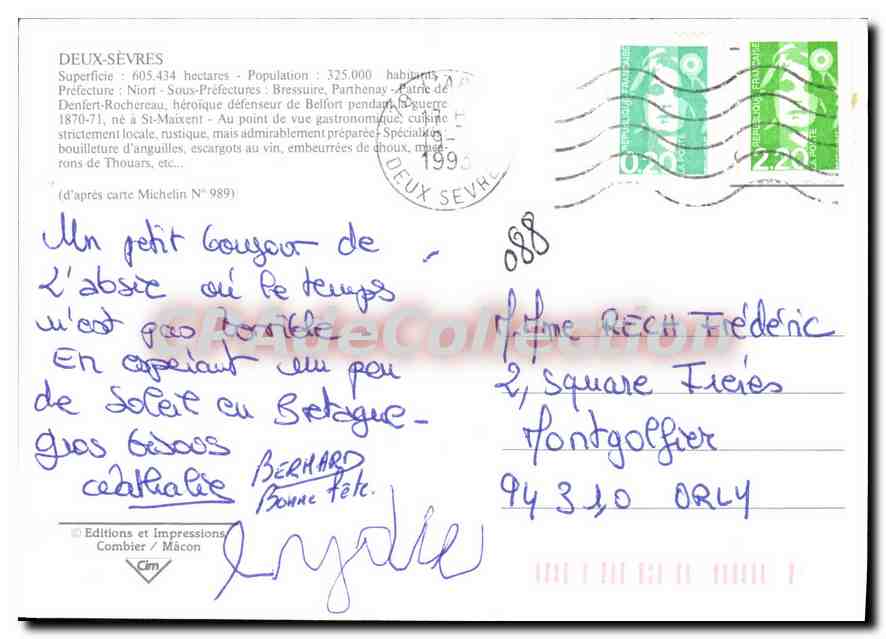 DEUX-SÈVRES
Superficie : 605.434 hectares - Population : 325.000 habitants
Préfecture : Niort - Sous-Préfectures : Bressuire, Parthenay - Patrie de
Denfert-Rochereau, héroïque défenseur de Belfort pendant la guerre
1870-71, né à St-Maixent - Au point de vue gastronomique, cuisine
strictement locale, rustique, mais admirablement préparée - Spécialités
bouilleture d'anguilles, escargots au vin, embeurrées de choux, maca-
rons de Thouars, etc...
(d'après carte Michelin N° 989)
17 H
19-
1993
DEUX SEVRES
REPUBLIQUE FRANÇAISE
0,20
LA POSTE
REPUBLIQUE FRANÇAISE
2,20
LA POSTE
088
Un petit bonjour de
L'absie où le temps
n'est pas terrible
En espérant un peu
de soleil en Bretagne -
gros bisous
Nathalie
BERNARD
Bonne fête.
Lydie
M. Mme RECH Frédéric
2, square Frères
Montgolfier
94310 ORLY
© Editions et Impressions
Combier / Mâcon
Cim
CPAdeCollection